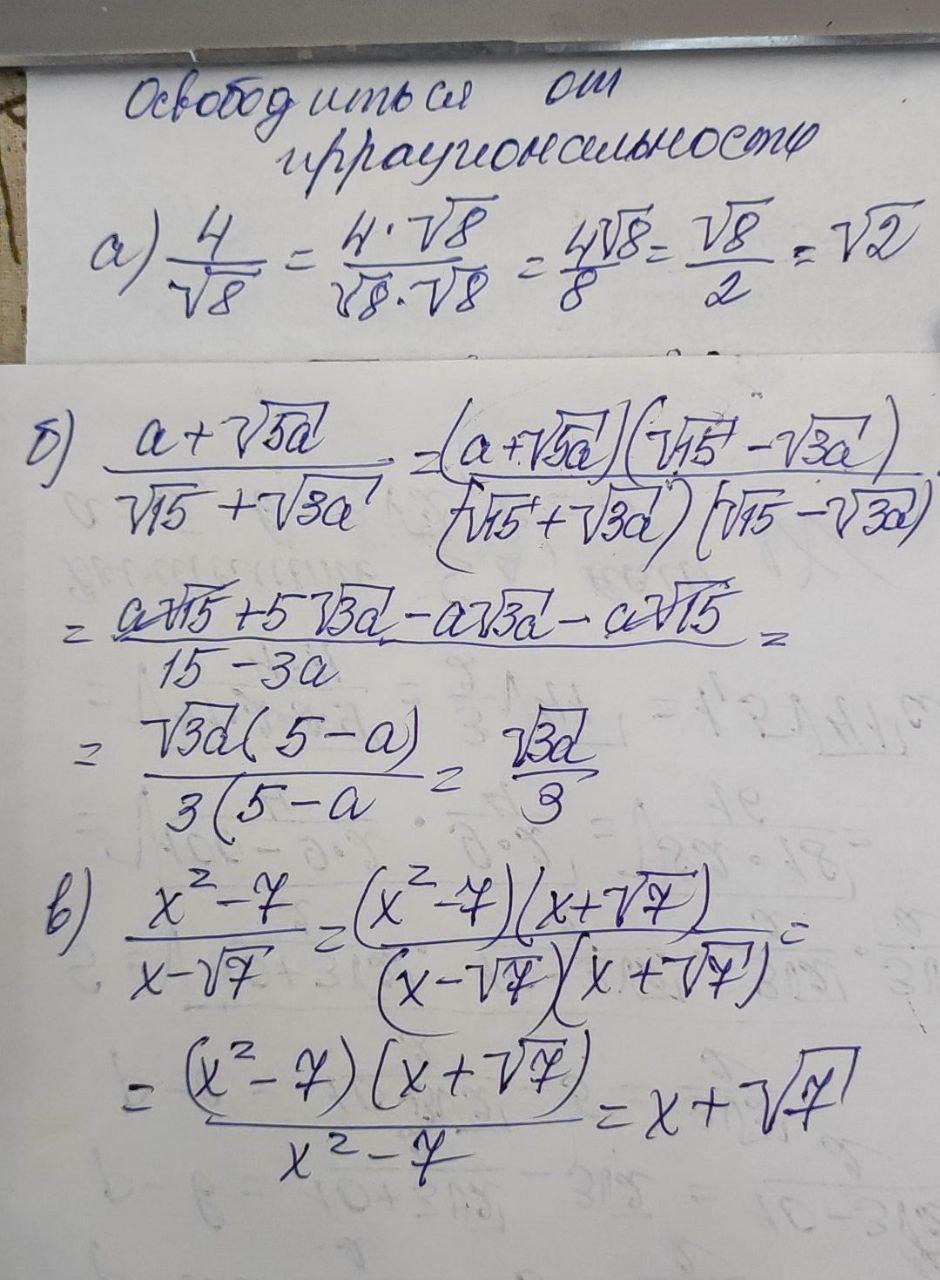 Освободиться от
иррациональности
а) 4/√8 = 4·√8/√8·√8 = 4√8/8 = √8/2 = √2
б) a+√5a/√15+√3a = (a+√5a)(√15-√3a)/(√15+√3a)(√15-√3a)
= a√15+5√3a-a√3a-a√15/15-3a =
= √3a(5-a)/3(5-a = √3a/3
в) x²-7/x-√7 = (x²-7)(x+√7)/(x-√7)(x+√7) =
= (x²-7)(x+√7)/x²-7 = x+√7